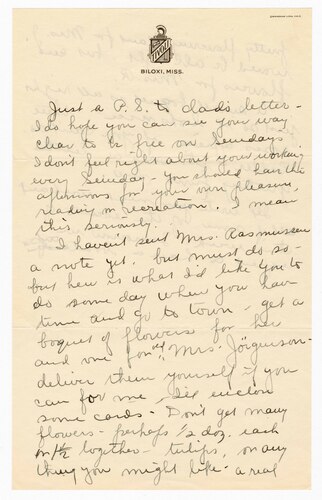 TIVOLI
BILOXI, MISS.
Just a P.S. to dad's letter -
I do hope you can see your way
clear to be free on Sundays
I don't feel right about your working
every Sunday - you should have the
afternoons for your own pleasure,
reading or recreation. I mean
this seriously.
I haven't sent Mrs. Rasmussen
a note yet. but must do so -
but here is what I'd like you to
do some day when you have
time and go to town - get a
boquet of flowers for her
and one for Mrs. Jörgenson -
deliver them yourself if you
can for me, I'll enclose
some cards - Don't get many
flowers - perhaps 1/2 doz. each
or 1/2 together - tulips, or any
thing you might like - a real